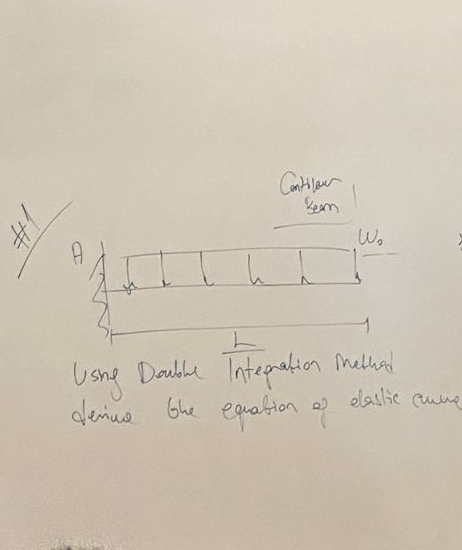 Cantilever
Beam
#1
A
Wo
L
Using Double Integration Method
derive the equation of elastic curve